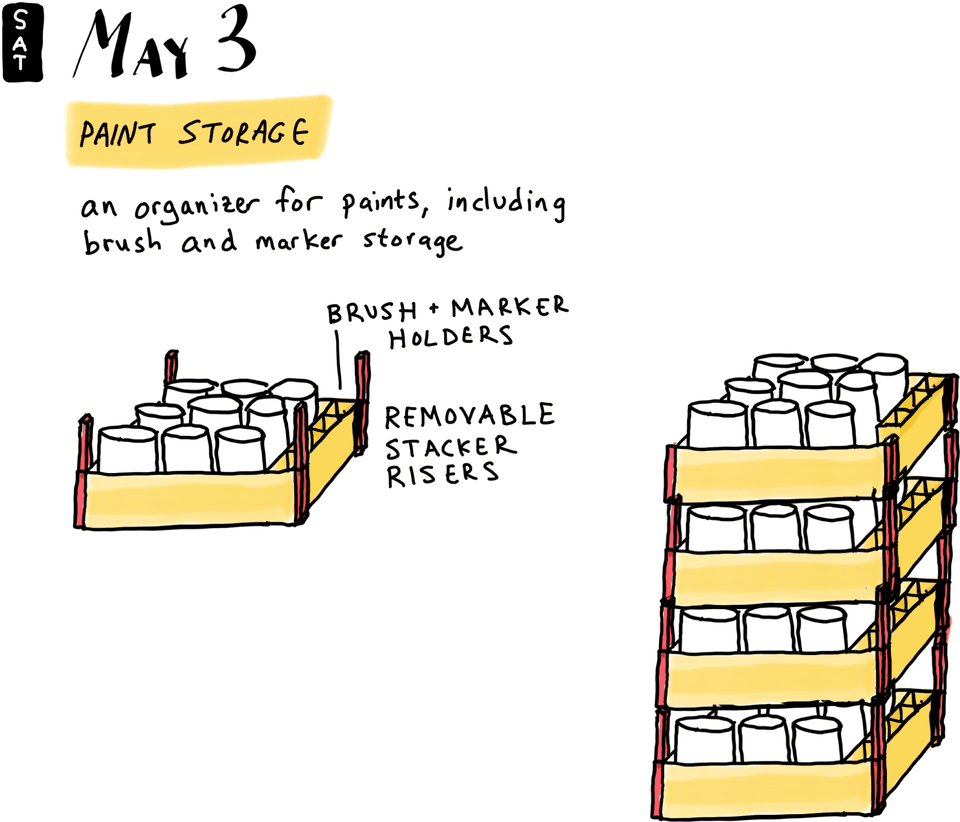 SAT
MAY 3
PAINT STORAGE
an organizer for paints, including
brush and marker storage
BRUSH + MARKER
HOLDERS
REMOVABLE
STACKER
RISERS